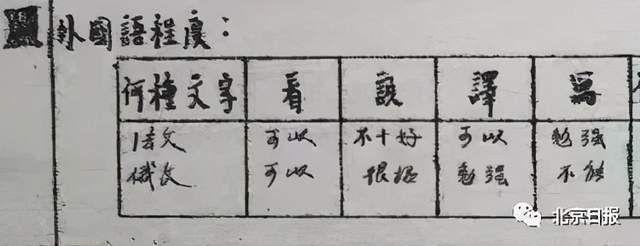 外國語程度：
何種文字 看 說 譯 寫
文 可以 不十好 可以 勉强
俄文 可以 很 勉强 不能
北京日报